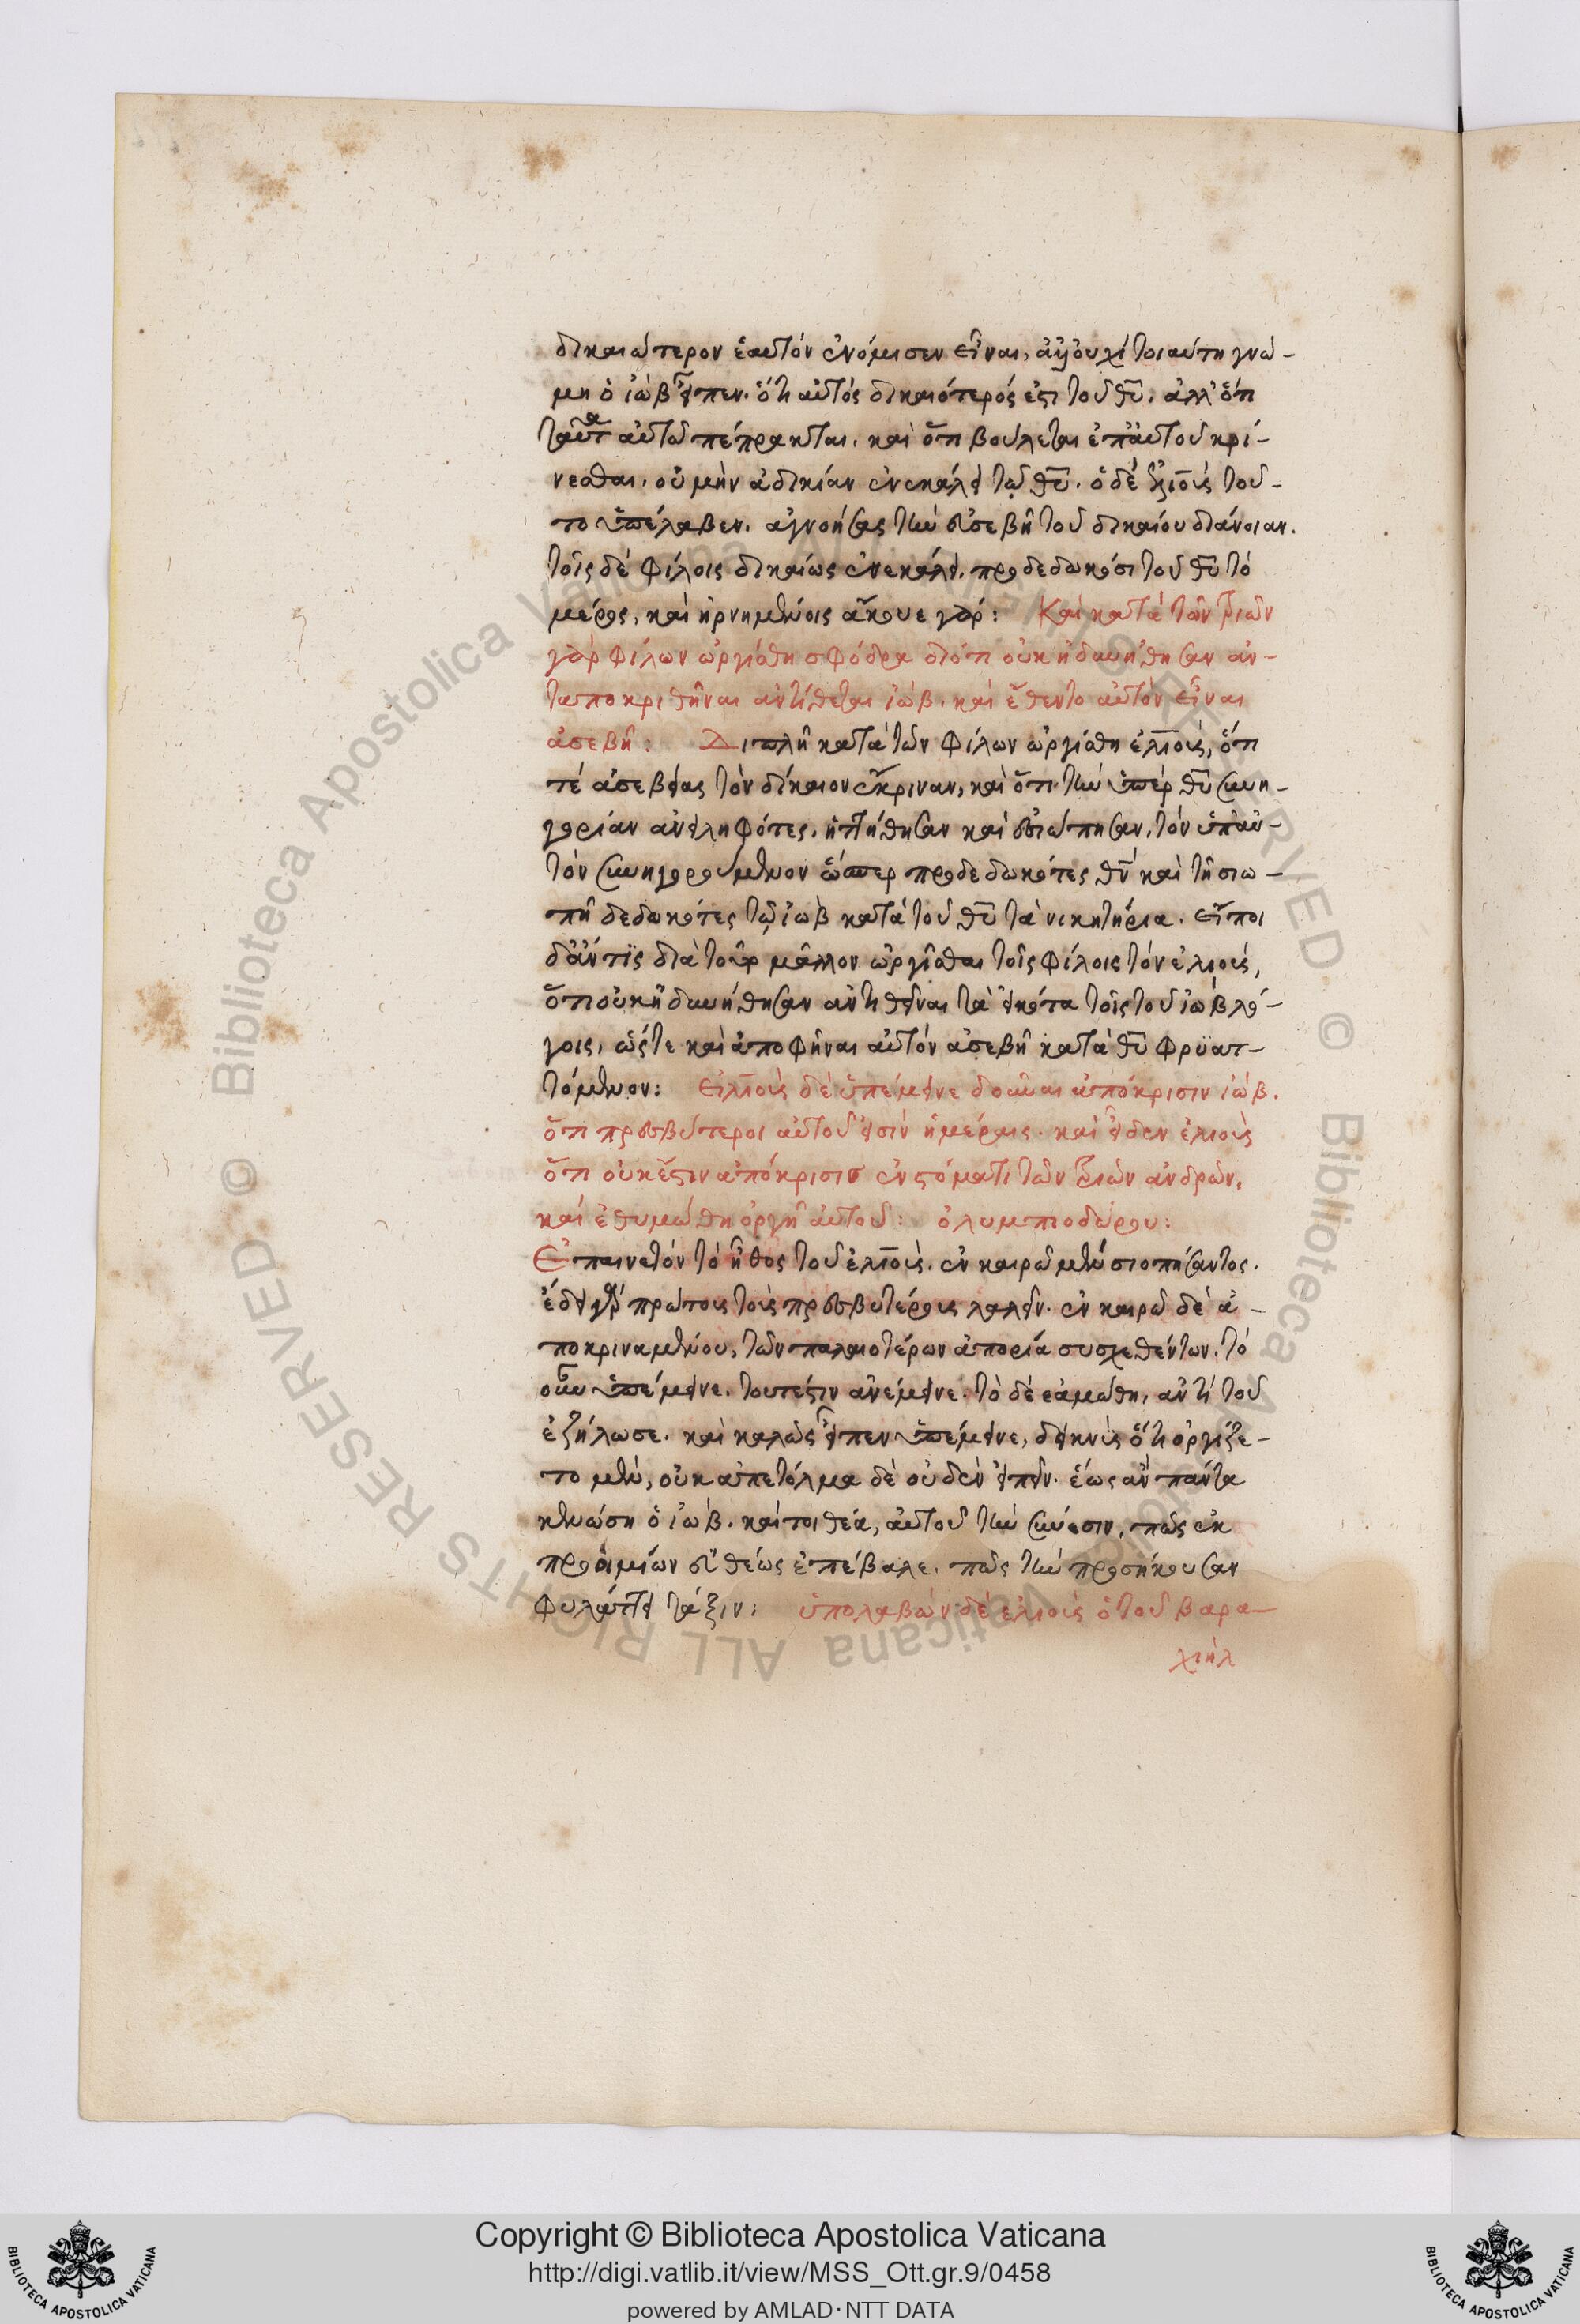 δικαιώτερον ἑαυτόν ἐνόμισεν εἶναι, ἀλλ' οὐχί τοιαύτη γνώ-
μη ὁ ἰὼβ εἶπεν. ὅτι αὐτός δικαιότερός ἐστι τοῦ θῦ. ἀλλ' ὅτι
ταῦτα αὐτῶ πέπρακται. καὶ ὅτι βούλεται ἐπ' αὐτοῦ κρί-
νεσθαι. οὐ μὴν ἀδικίαν ἐνεκάλει τῶ θῶ. ὁ δέ ἐλιοῦς τοῦ-
το ὑπέλαβεν. ἀγνοήσας τὴν εὐσεβῆ τοῦ δικαίου διάνοιαν.
τοῖς δέ φίλοις δικαίως ἐνεκάλει. προδεδωκόσι τοῦ θῦ τό
μέρος, καὶ ἠρνημένοις ἄκουε γάρ: Καὶ κατά τῶν τριῶν
γὰρ φίλων ὠργίσθη σφόδρα διότι οὐκ ἠδυνήθησαν ἀν-
ταποκριθῆναι ἀντίθεται ἰώβ. καὶ ἔθεντο αὐτὸν εἶναι
ἀσεβῆ: Διπλῆ κατὰ τῶν φίλων ὠργίσθη ἐλιοῦς, ὅτι
τέ ἀσεβείας τὸν δίκαιον ἔκριναν, καὶ ὅτι τὴν ὑπέρ θῦ συνη-
γορίαν ἀνειληφότες. ἡττήθησαν καὶ ἐσιώπησαν, τόν ὑπ' αὐ-
τόν συνηγορούμενον ὥσπερ προδεδωκότες θν καὶ τῆ σιω-
πῆ δεδωκότες τῶ ἰὼβ κατά τοῦ θῦ τὰ νικητήρια. εἴποι
δ' ἄν τις διὰ τοῦτο μᾶλλον ὠργίσθαι τοῖς φίλοις τόν ἐλιοῦς,
ὅτι οὐκ ἠδυνήθησαν ἀντιθεῖναι τὰ εἰκότα τοῖς τοῦ ἰὼβ λό-
γοις, ὥςτε καὶ ἀποφῆναι αὐτόν ἀσεβῆ κατὰ θῦ φρυατ-
τόμενον: ἐλιοῦς δὲ ὑπέμεινε δοῦναι ἀπόκρισιν ἰώβ.
ὅτι πρεσβύτεροι αὐτοῦ εἰσίν ἡμέραις. καὶ εἶδεν ἐλιοὺς
ὅτι οὐκ ἔστιν ἀπόκρισις ἐν στόματι τῶν τριῶν ἀνδρῶν,
καὶ ἐθυμώθη ὀργῆ αὐτοῦ: ὀλυμπιοδώρου:
Ἐπαινετόν τὸ ἦθος τοῦ ἐλιοῦς. ἐν καιρῶ μέν σιοπήσαντος.
ἔδει γὰρ πρώτοις τοῖς πρεσβυτέροις λαλεῖν. ἐν καιρῶ δέ ἀ-
ποκριναμένου, τῶν παλαιοτέρων ἀπορία συσχεθέντων. τό
οὖν ὑπέμεινε. τουτέστιν ἀνέμεινε. τὸ δέ ἐθυμώθη, ἀντί τοῦ
ἐζήλωσε. καὶ καλῶς εἶπεν ὑπέμεινε, δεικνὺς ὅτι ὀργίζε-
το μέν, οὐκ ἀπετόλμα δὲ οὐδέν εἰπεῖν. ἕως ἄν πάντα
κενώση ὁ ἰώβ. καίτοι θέα, αὐτοῦ τὴν σύνεσιν, πῶς ἐκ
προοιμίων εὐθέως ἐπέβαλε. πῶς τὴν προσήκουσαν
φυλάττει τάξιν: ὑπολαβών δὲ ἐλιοὺς ὁ τοῦ βαρα-
χιὴλ
Copyright © Biblioteca Apostolica Vaticana
http://digi.vatlib.it/view/MSS_Ott.gr.9/0458
powered by AMLAD·NTT DATA